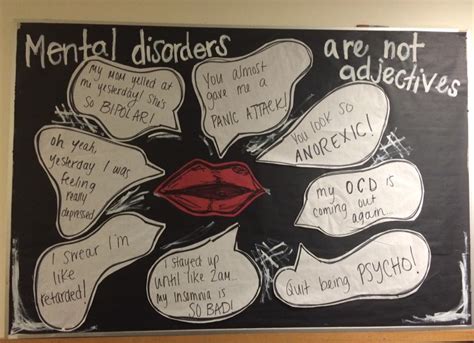 Mental disorders
are not
adjectives
my MOM yelled at
me yesterday! She's
SO BIPOLAR!
You almost
gave me a
PANIC ATTACK!
You look so
ANOREXIC!
oh yeah,
yesterday I was
feeling
really
depressed.
my OCD is
coming out
again...
I swear I'm
like
retarded!
I stayed up
until like 2am...
my insomnia is
SO BAD!
Quit being PSYCHO!